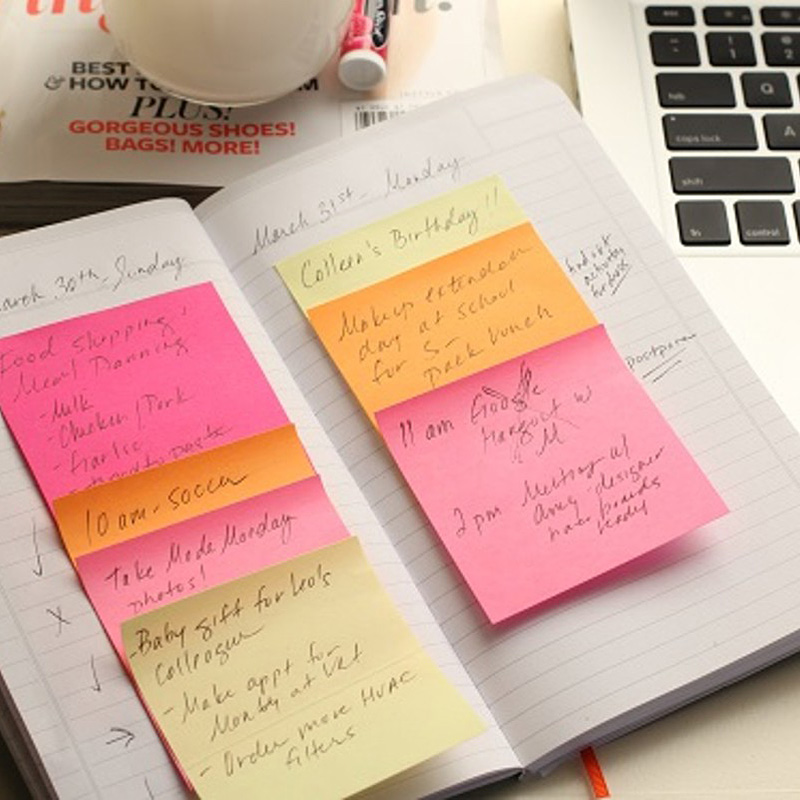 BEST
& HOW TO
PLUS!
GORGEOUS SHOES!
BAGS! MORE!
March 30th - Sunday
Food Shopping
Meal Planning
- Milk
- Chicken / Pork
- Garlic
- tomato paste
10 am - soccer
Take Made Monday
photos!
- Baby gift for Leo's
Colleague
- Make appt for
Monty at vet
- Order more HVAC
filters
March 31st - Monday
Colleen's Birthday!!
Makeup extended
day at school
for S -
Pack Lunch
11 am Google
Hangout w
M
2 pm Meeting w/
Amy - designer
have boards
ready
find out
activities
for kids
postpone
tab
Q
caps lock
A
shift
fn
control